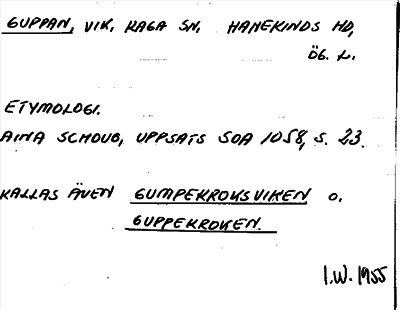 GUPPAN, VIK, KAGA SN. HANEKINDS HD,
ÖG. L.
ETYMOLOGI.
AINA SCHOUG, UPPSATS SOA 1058, S. 23.
KALLAS ÄVEN GUMPEKROKSVIKEN O.
GUPPEKROKEN.
I.W. 1955